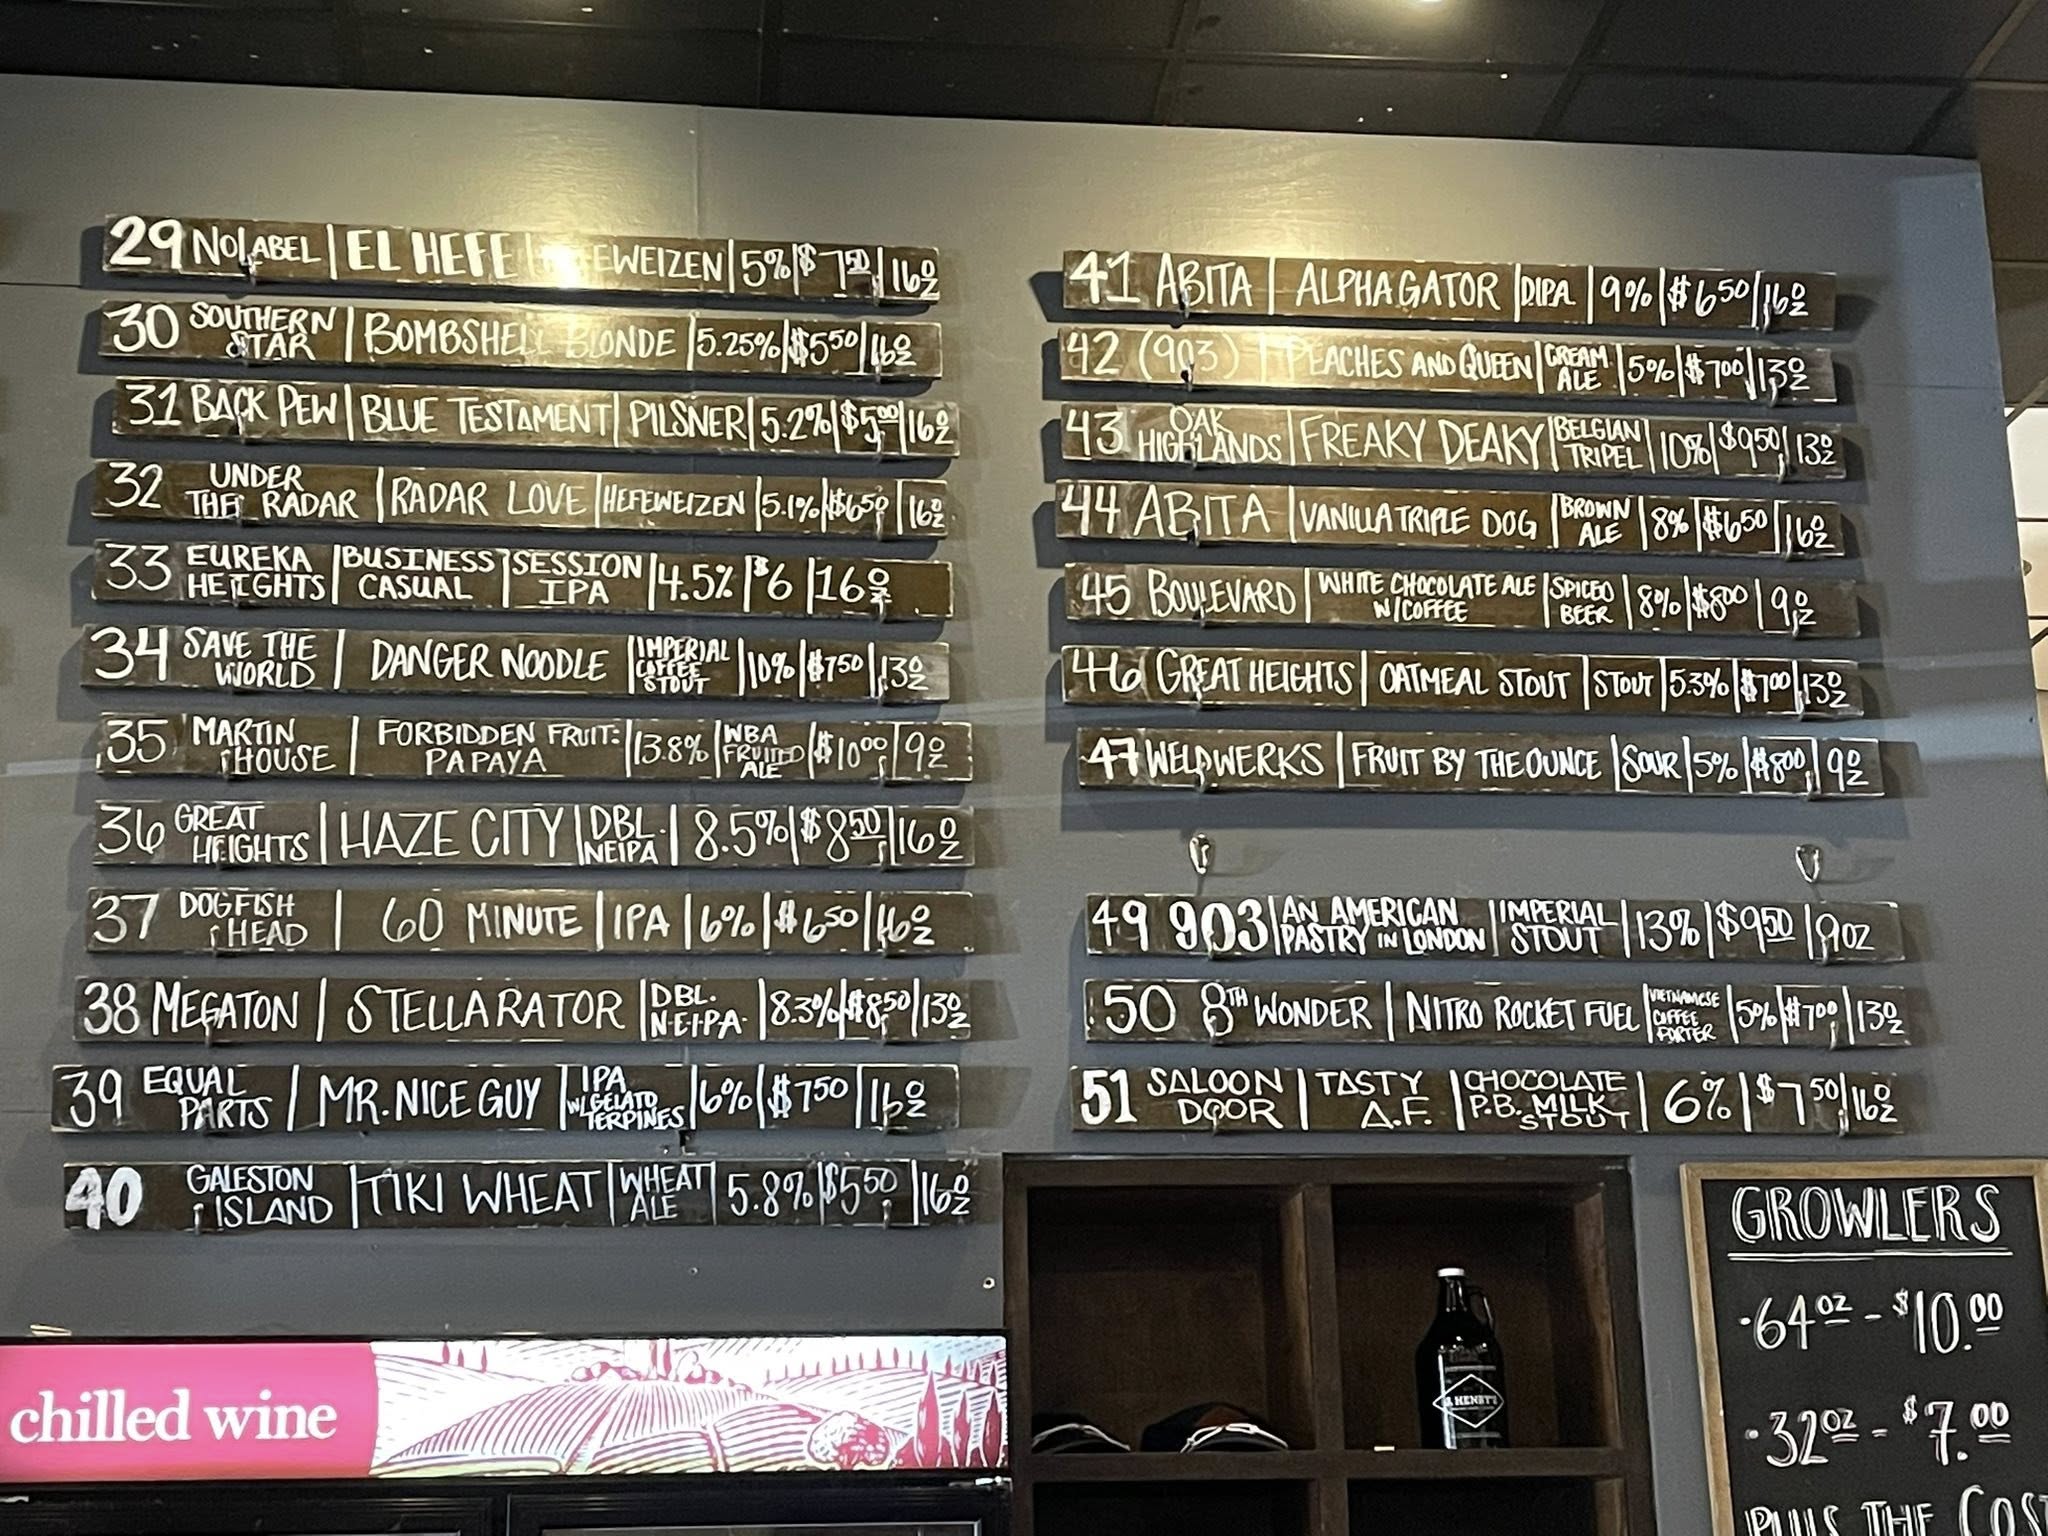 29 NOLABEL | EL HEFE | EWEIZEN | 5% | $7.50 | 16oz
30 SOUTHERN STAR | BOMBSHELL BLONDE | 5.25% | $5.50 | 16oz
31 BACK PEW | BLUE TESTAMENT | PILSNER | 5.2% | $5.00 | 16oz
32 UNDER THE RADAR | RADAR LOVE | HEFEWEIZEN | 5.1% | $6.50 | 16oz
33 EUREKA HEIGHTS | BUSINESS CASUAL | SESSION IPA | 4.5% | $6 | 16oz
34 SAVE THE WORLD | DANGER NOODLE | IMPERIAL COFFEE STOUT | 10% | $7.50 | 13oz
35 MARTIN HOUSE | FORBIDDEN FRUIT: PAPAYA | 13.8% | WBA FRUITED ALE | $10.00 | 9oz
36 GREAT HEIGHTS | HAZE CITY | DBL. NEIPA | 8.5% | $8.50 | 16oz
37 DOGFISH HEAD | 60 MINUTE | IPA | 6% | $6.50 | 16oz
38 MEGATON | STELLARATOR | DBL. N.E.I.P.A. | 8.3% | $8.50 | 13oz
39 EQUAL PARTS | MR. NICE GUY | IPA W/GELATO TERPINES | 6% | $7.50 | 16oz
40 GALESTON ISLAND | TIKI WHEAT | WHEAT ALE | 5.8% | $5.50 | 16oz
41 ABITA | ALPHAGATOR | DIPA | 9% | $6.50 | 16oz
42 (903) | PEACHES AND QUEEN | CREAM ALE | 5% | $7.00 | 13oz
43 OAK HIGHLANDS | FREAKY DEAKY | BELGIAN TRIPEL | 10% | $9.50 | 13oz
44 ABITA | VANILLA TRIPLE DOG | BROWN ALE | 8% | $6.50 | 16oz
45 BOULEVARD | WHITE CHOCOLATE ALE W/COFFEE | SPICED BEER | 8% | $8.00 | 9oz
46 GREAT HEIGHTS | OATMEAL STOUT | STOUT | 5.3% | $7.00 | 13oz
47 WELDWERKS | FRUIT BY THE OUNCE | SOUR | 5% | $8.00 | 9oz
49 903 | AN AMERICAN PASTRY IN LONDON | IMPERIAL STOUT | 13% | $9.50 | 9oz
50 8TH WONDER | NITRO ROCKET FUEL | VIETNAMESE COFFEE PORTER | 5% | $7.00 | 13oz
51 SALOON DOOR | TASTY A.F. | CHOCOLATE P.B. MILK STOUT | 6% | $7.50 | 16oz
GROWLERS
·64oz - $10.00
·32oz - $7.00
PLUS THE COST
chilled wine
HENRY'S